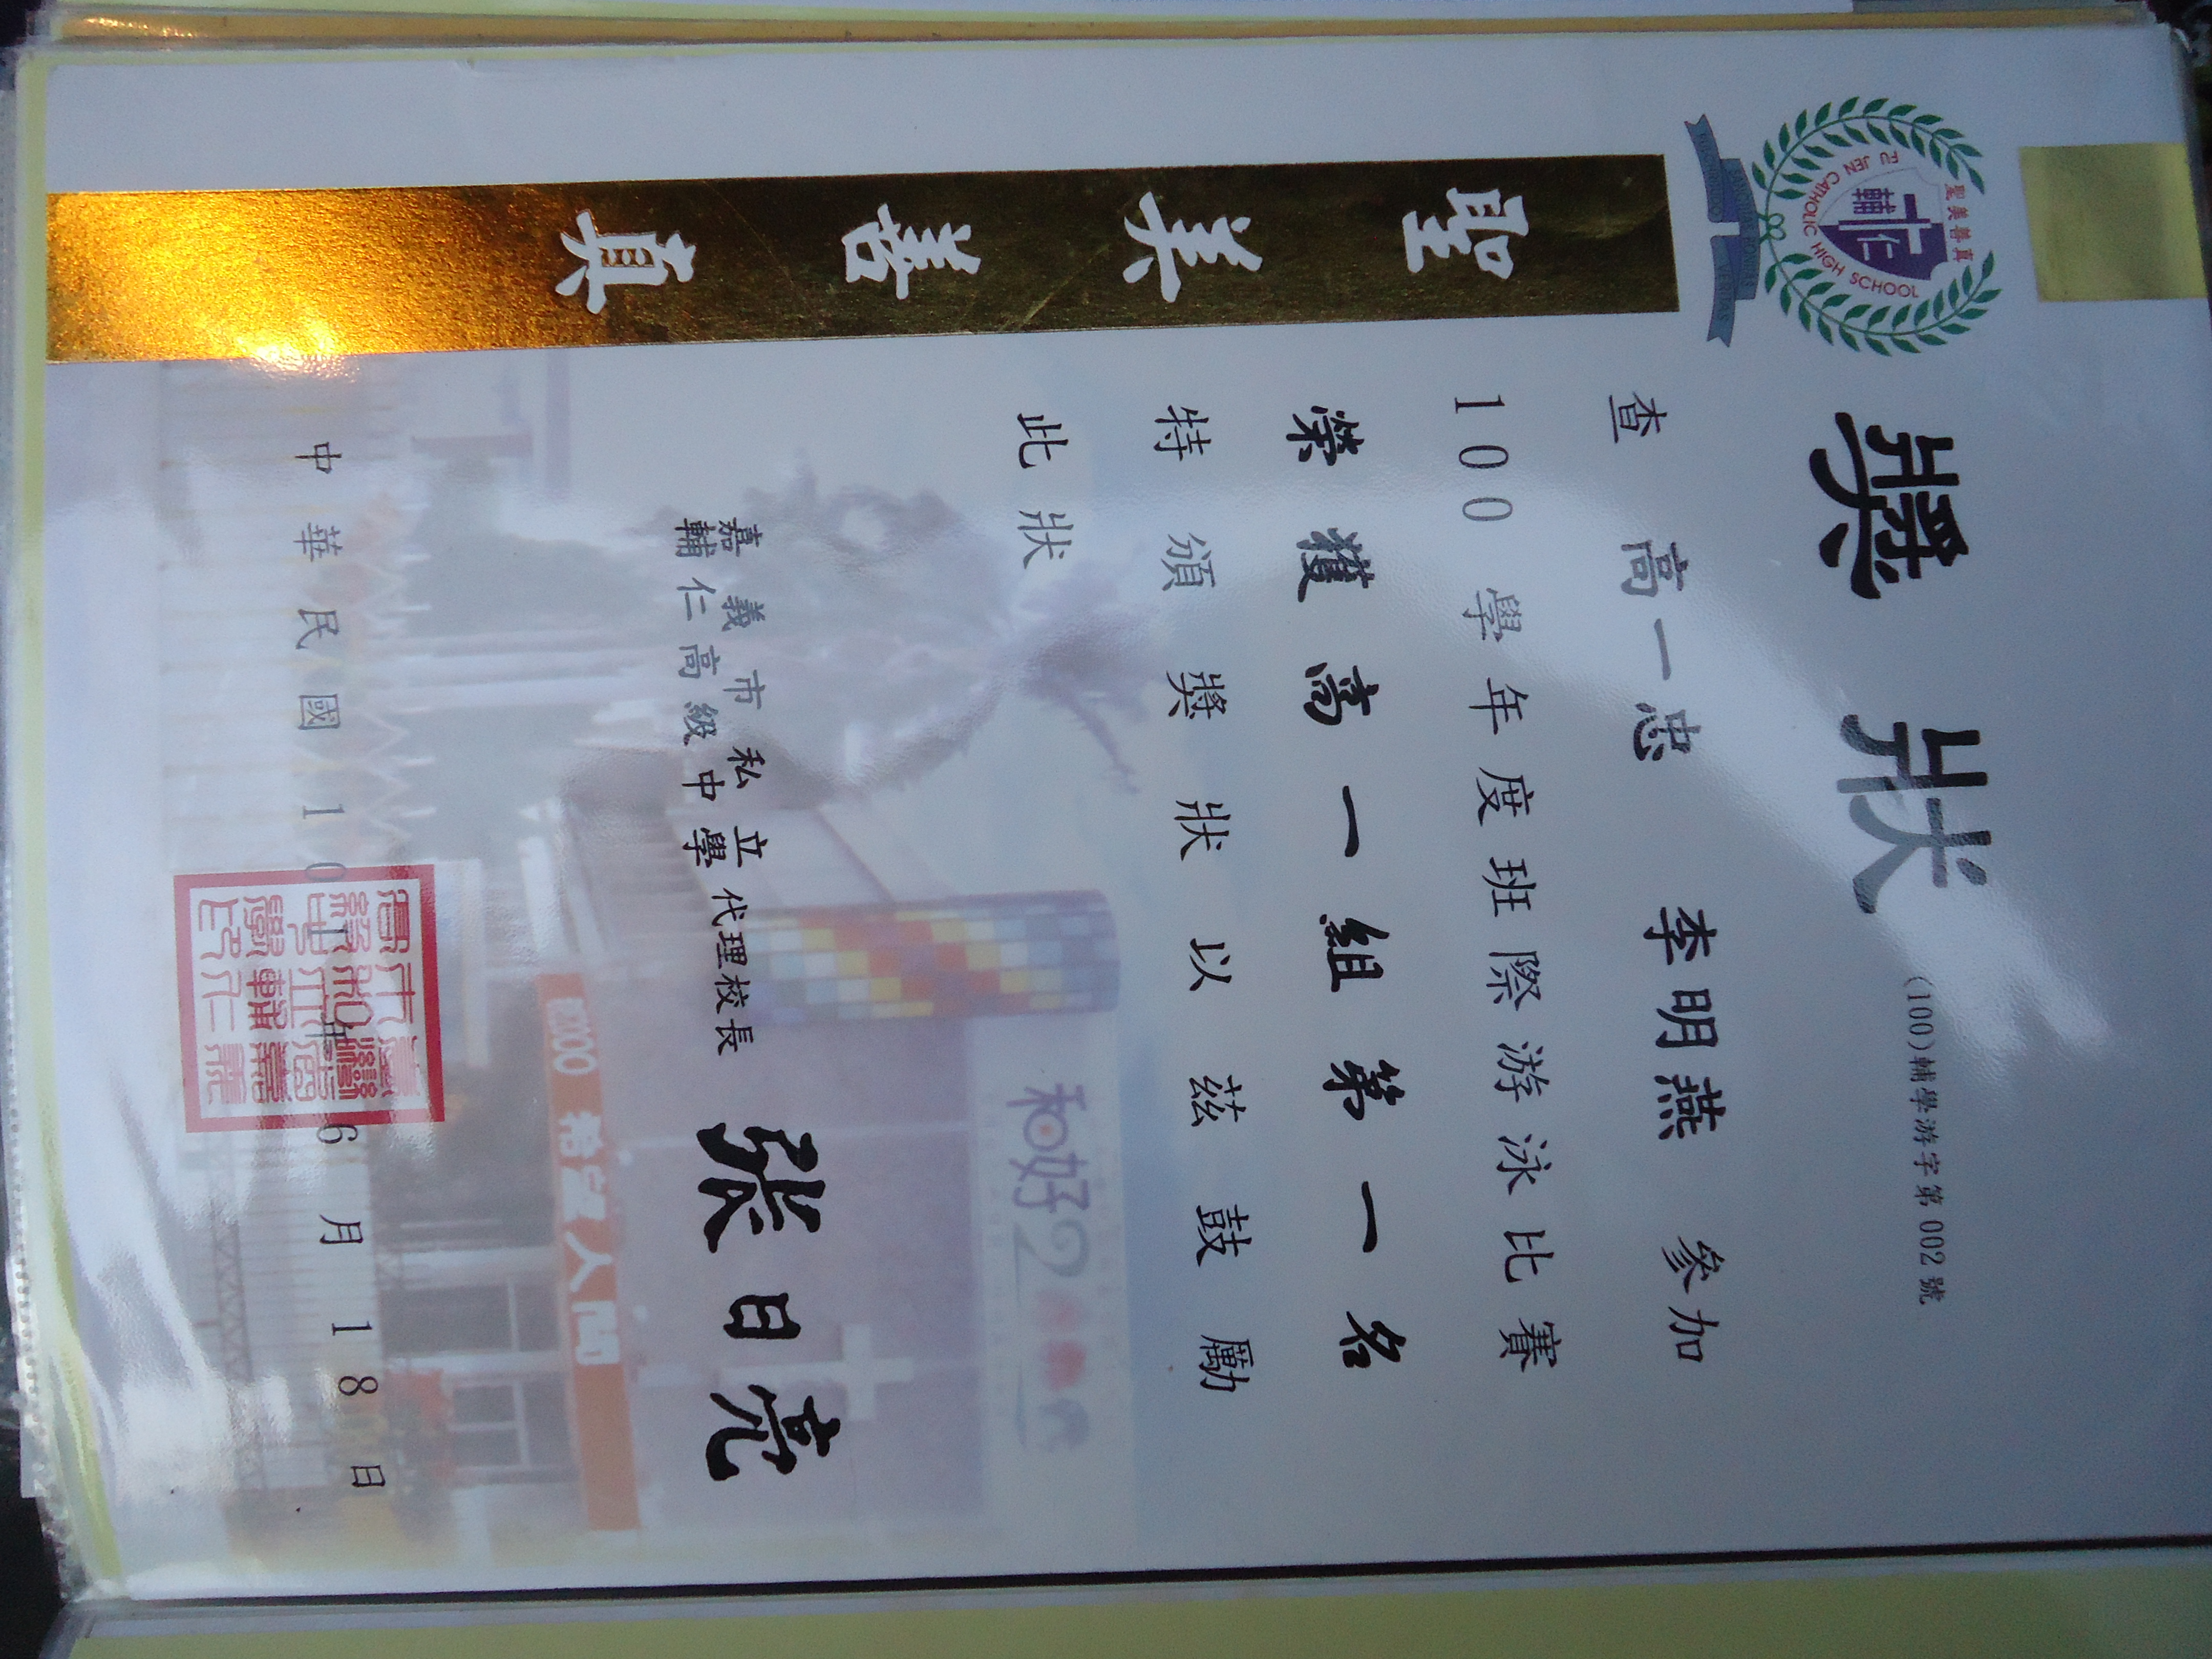 聖美善真
輔仁
FU JEN CATHOLIC HIGH SCHOOL
聖
美
善
真
獎狀
(100)輔學游字第002號
查 高一忠 李明燕 參加
100學年度班際游泳比賽
榮獲高一組第一名
特頒獎狀以茲鼓勵
此狀
嘉義市私立
輔仁高級中學
代理校長 張日亮
和好2
2000 希望人間
中華民國10 年6月18日